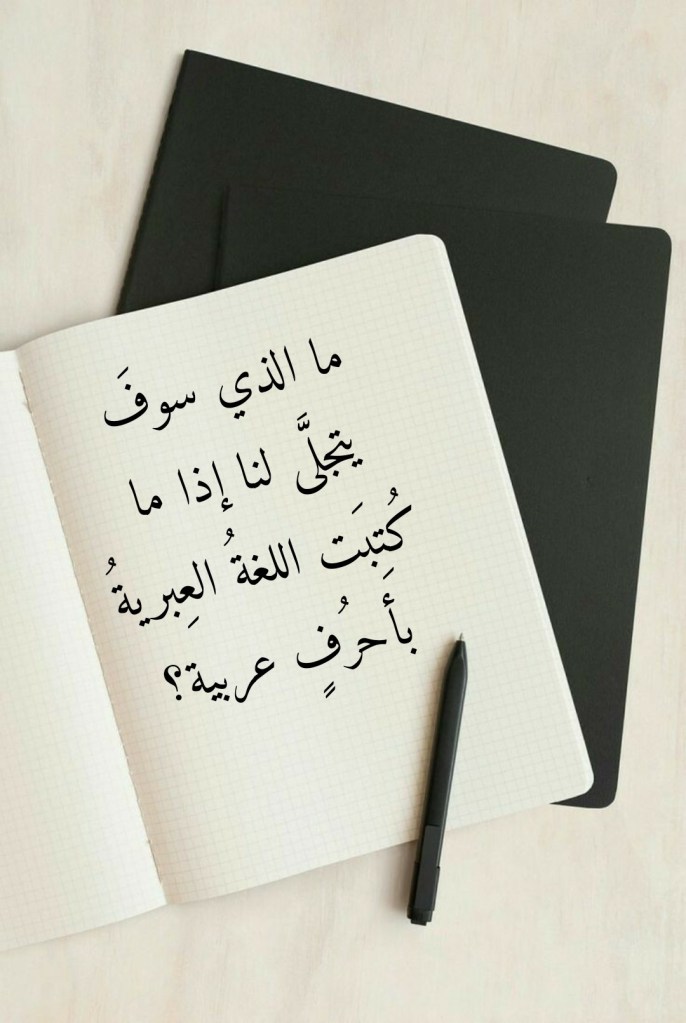 ما الذي سوفَ
يتجلَّى لنا إذا ما
كُتِبَت اللغةُ العِبريةُ
بأَحرُفٍ عربية؟